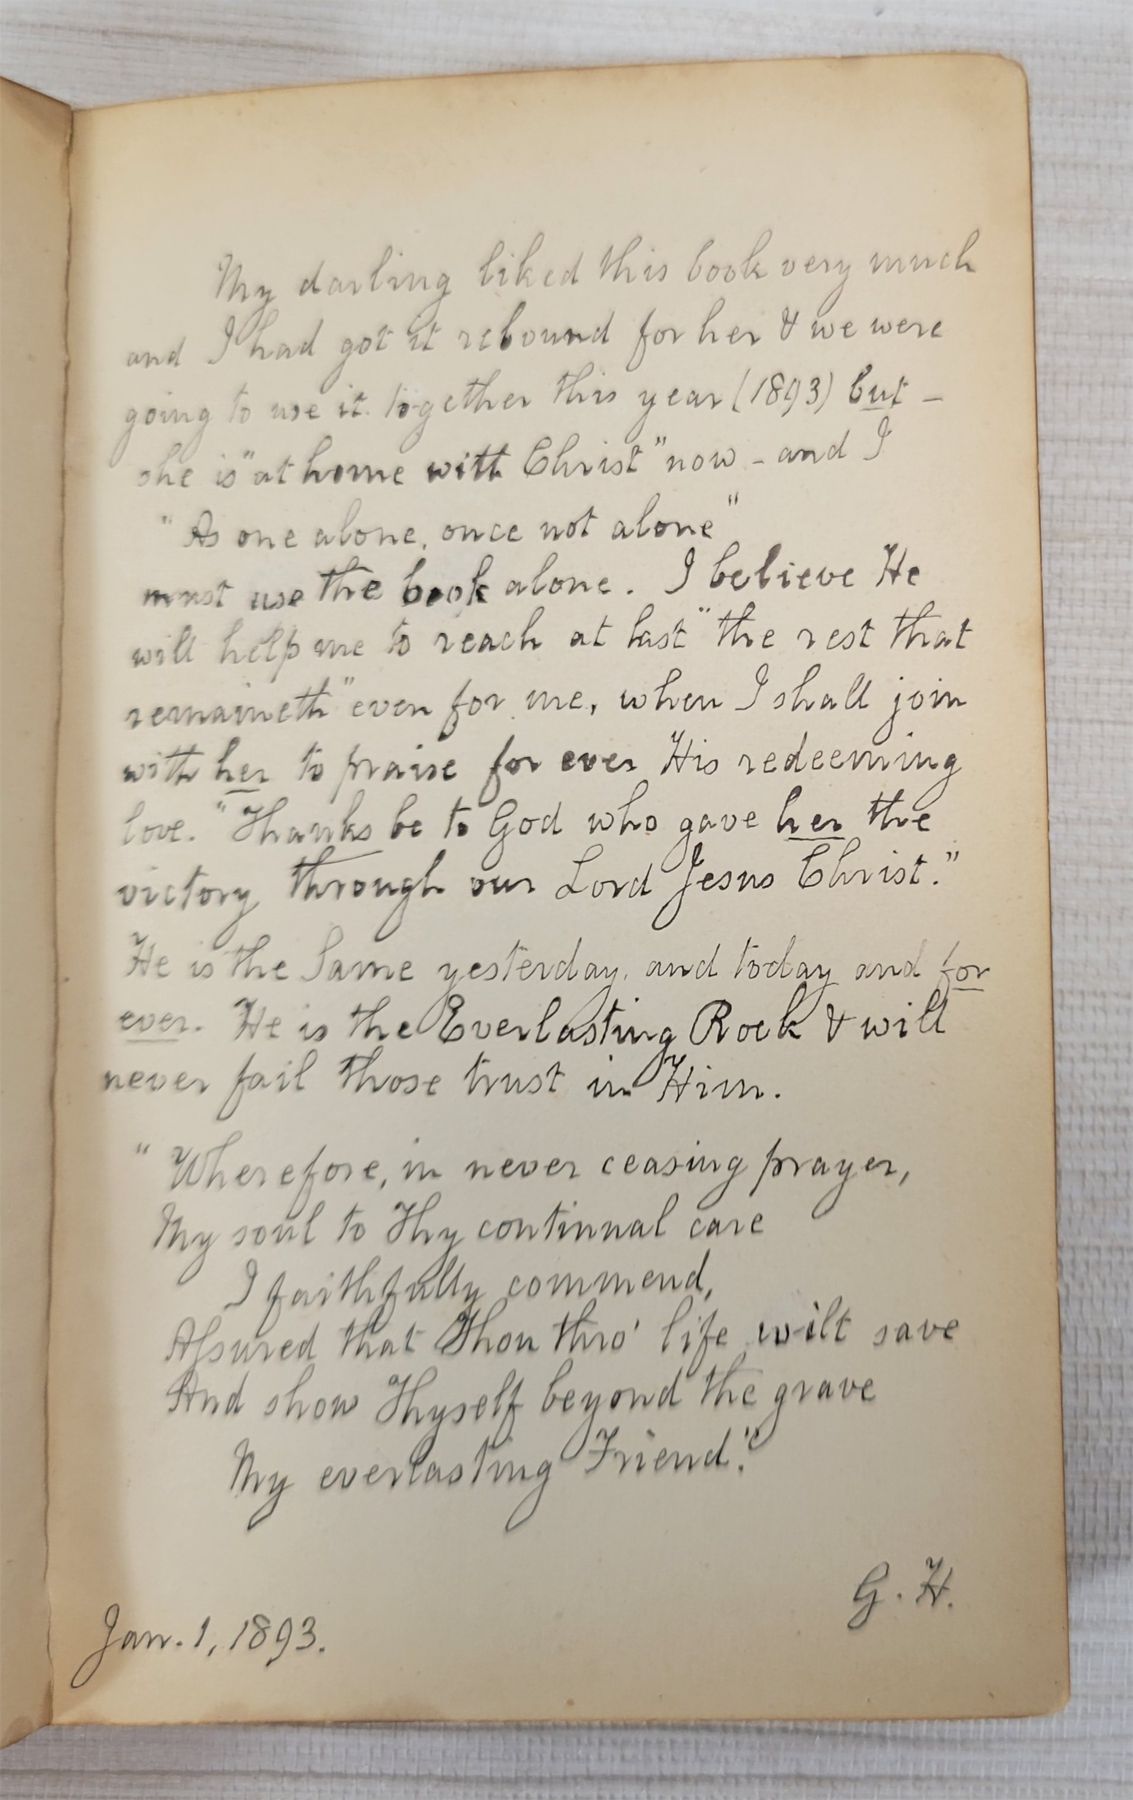 My darling liked this book very much
and I had got it rebound for her & we were
going to use it together this year (1893) but –
she is "at home with Christ" now – and I
"As one alone, once not alone"
must use the book alone. I believe He
will help me to reach at last "the rest that
remaineth" even for me, when I shall join
with her to praise for ever His redeeming
love. "Thanks be to God who gave her the
victory through our Lord Jesus Christ."
He is the Same yesterday, and today and for
ever. He is the Everlasting Rock & will
never fail those trust in Him.
"Wherefore, in never ceasing prayer,
My soul to Thy continual care
I faithfully commend,
Assured that Thou thro' life wilt save
And show Thyself beyond the grave
My everlasting Friend."
G. H.
Jan. 1, 1893.